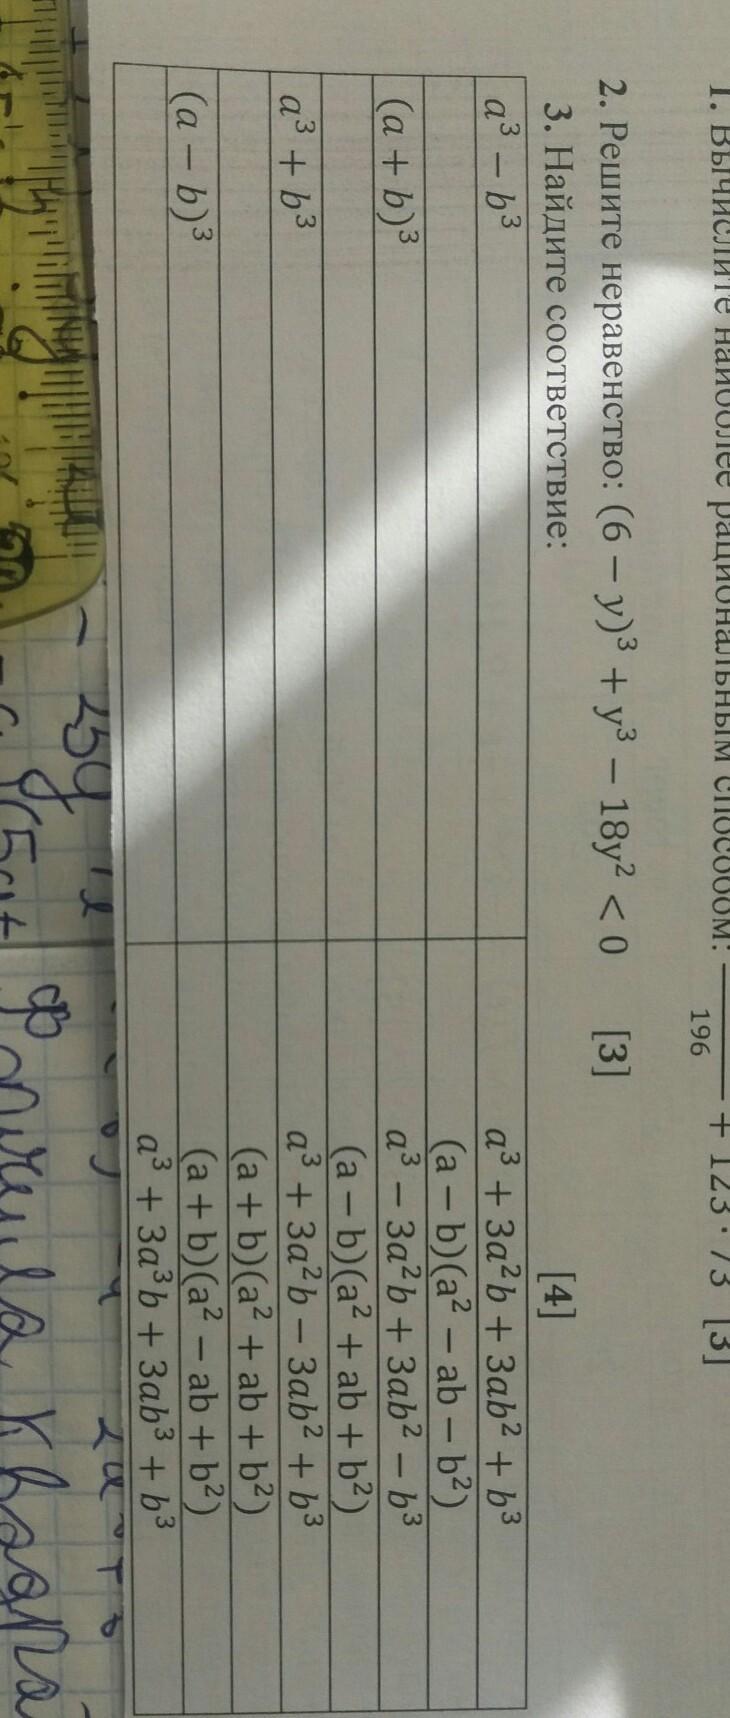 1. Вычислите наиболее рациональным способом: ――― + 123 · 73 [3]
196
2. Решите неравенство: (6 − y)³ + y³ − 18y² < 0 [3]
3. Найдите соответствие: [4]
a³ − b³ a³ + 3a²b + 3ab² + b³
(a − b)(a² − ab − b²)
(a + b)³ a³ − 3a²b + 3ab² − b³
(a − b)(a² + ab + b²)
a³ + b³ a³ + 3a²b − 3ab² + b³
(a + b)(a² + ab + b²)
(a − b)³ (a + b)(a² − ab + b²)
a³ + 3a³b + 3ab³ + b³